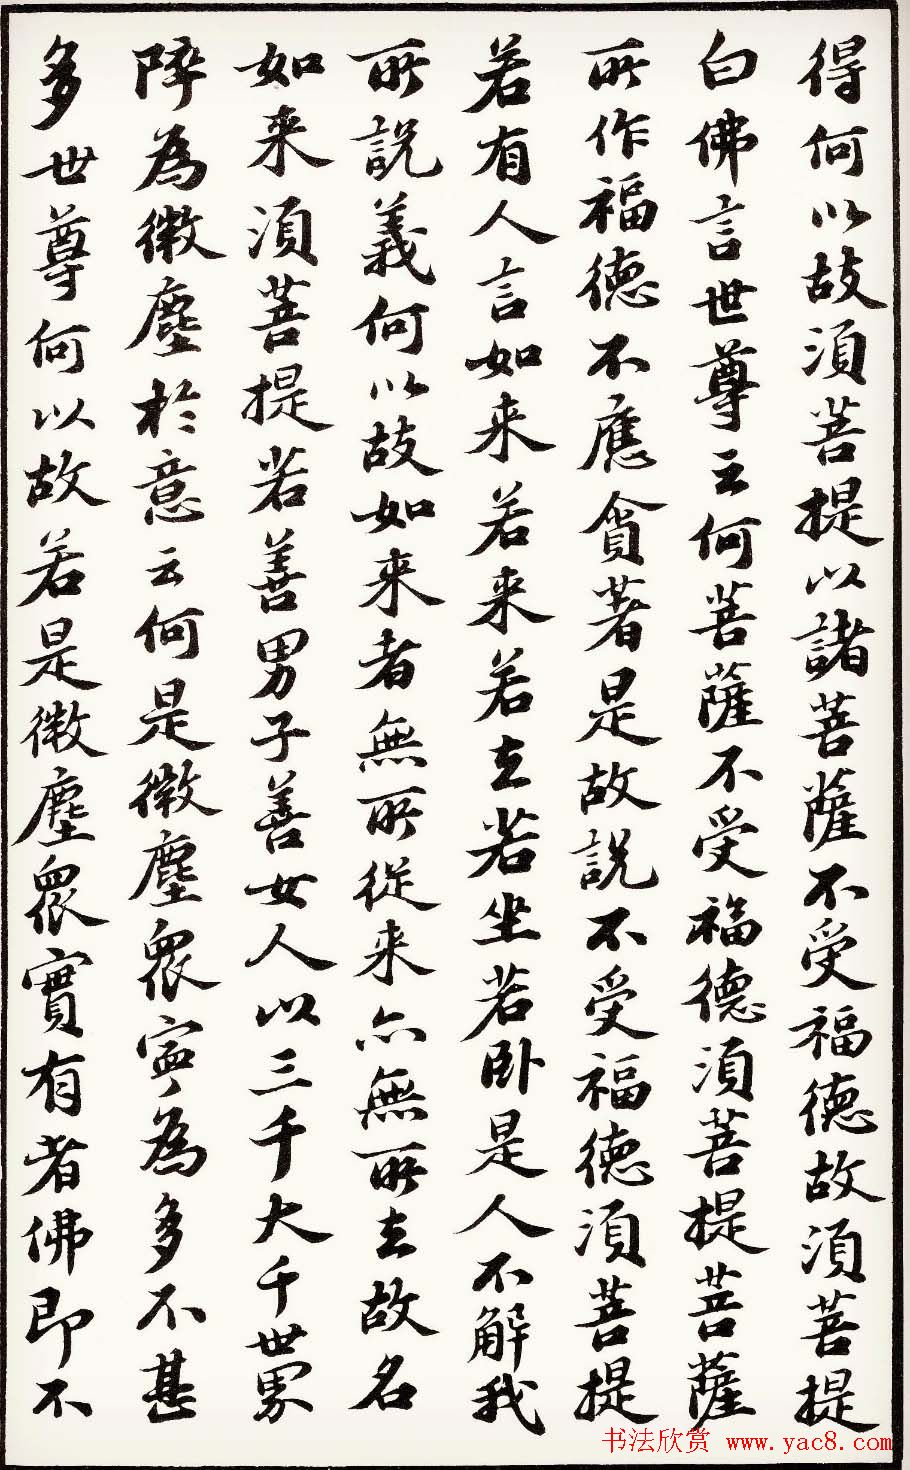 得何以故須菩提以諸菩薩不受福德故須菩提
白佛言世尊云何菩薩不受福德須菩提菩薩
所作福德不應貪著是故說不受福德須菩提
若有人言如来若来若去若坐若卧是人不解我
所說義何以故如来者無所從来亦無所去故名
如来須菩提若善男子善女人以三千大千世界
碎為微塵於意云何是微塵眾寧為多不甚
多世尊何以故若是微塵眾實有者佛即不
书法欣赏 www.yac8.com